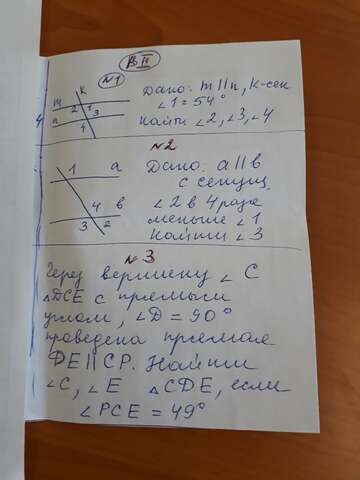 В II
N1
k
m
2 1
3
n
4
Дано: m||n, k-сек
∠1 = 54°
Найти ∠2, ∠3, ∠4
N2
1 a
4 в
3 2
Дано: a||в
с секущ.
∠2 в 4 раза
меньше ∠1
Найти ∠3
N3
Через вершину ∠C
△DCE с прямым
углом, ∠D = 90°
проведена прямая
DE||CP. Найти
∠C, ∠E △CDE, если
∠PCE = 49°